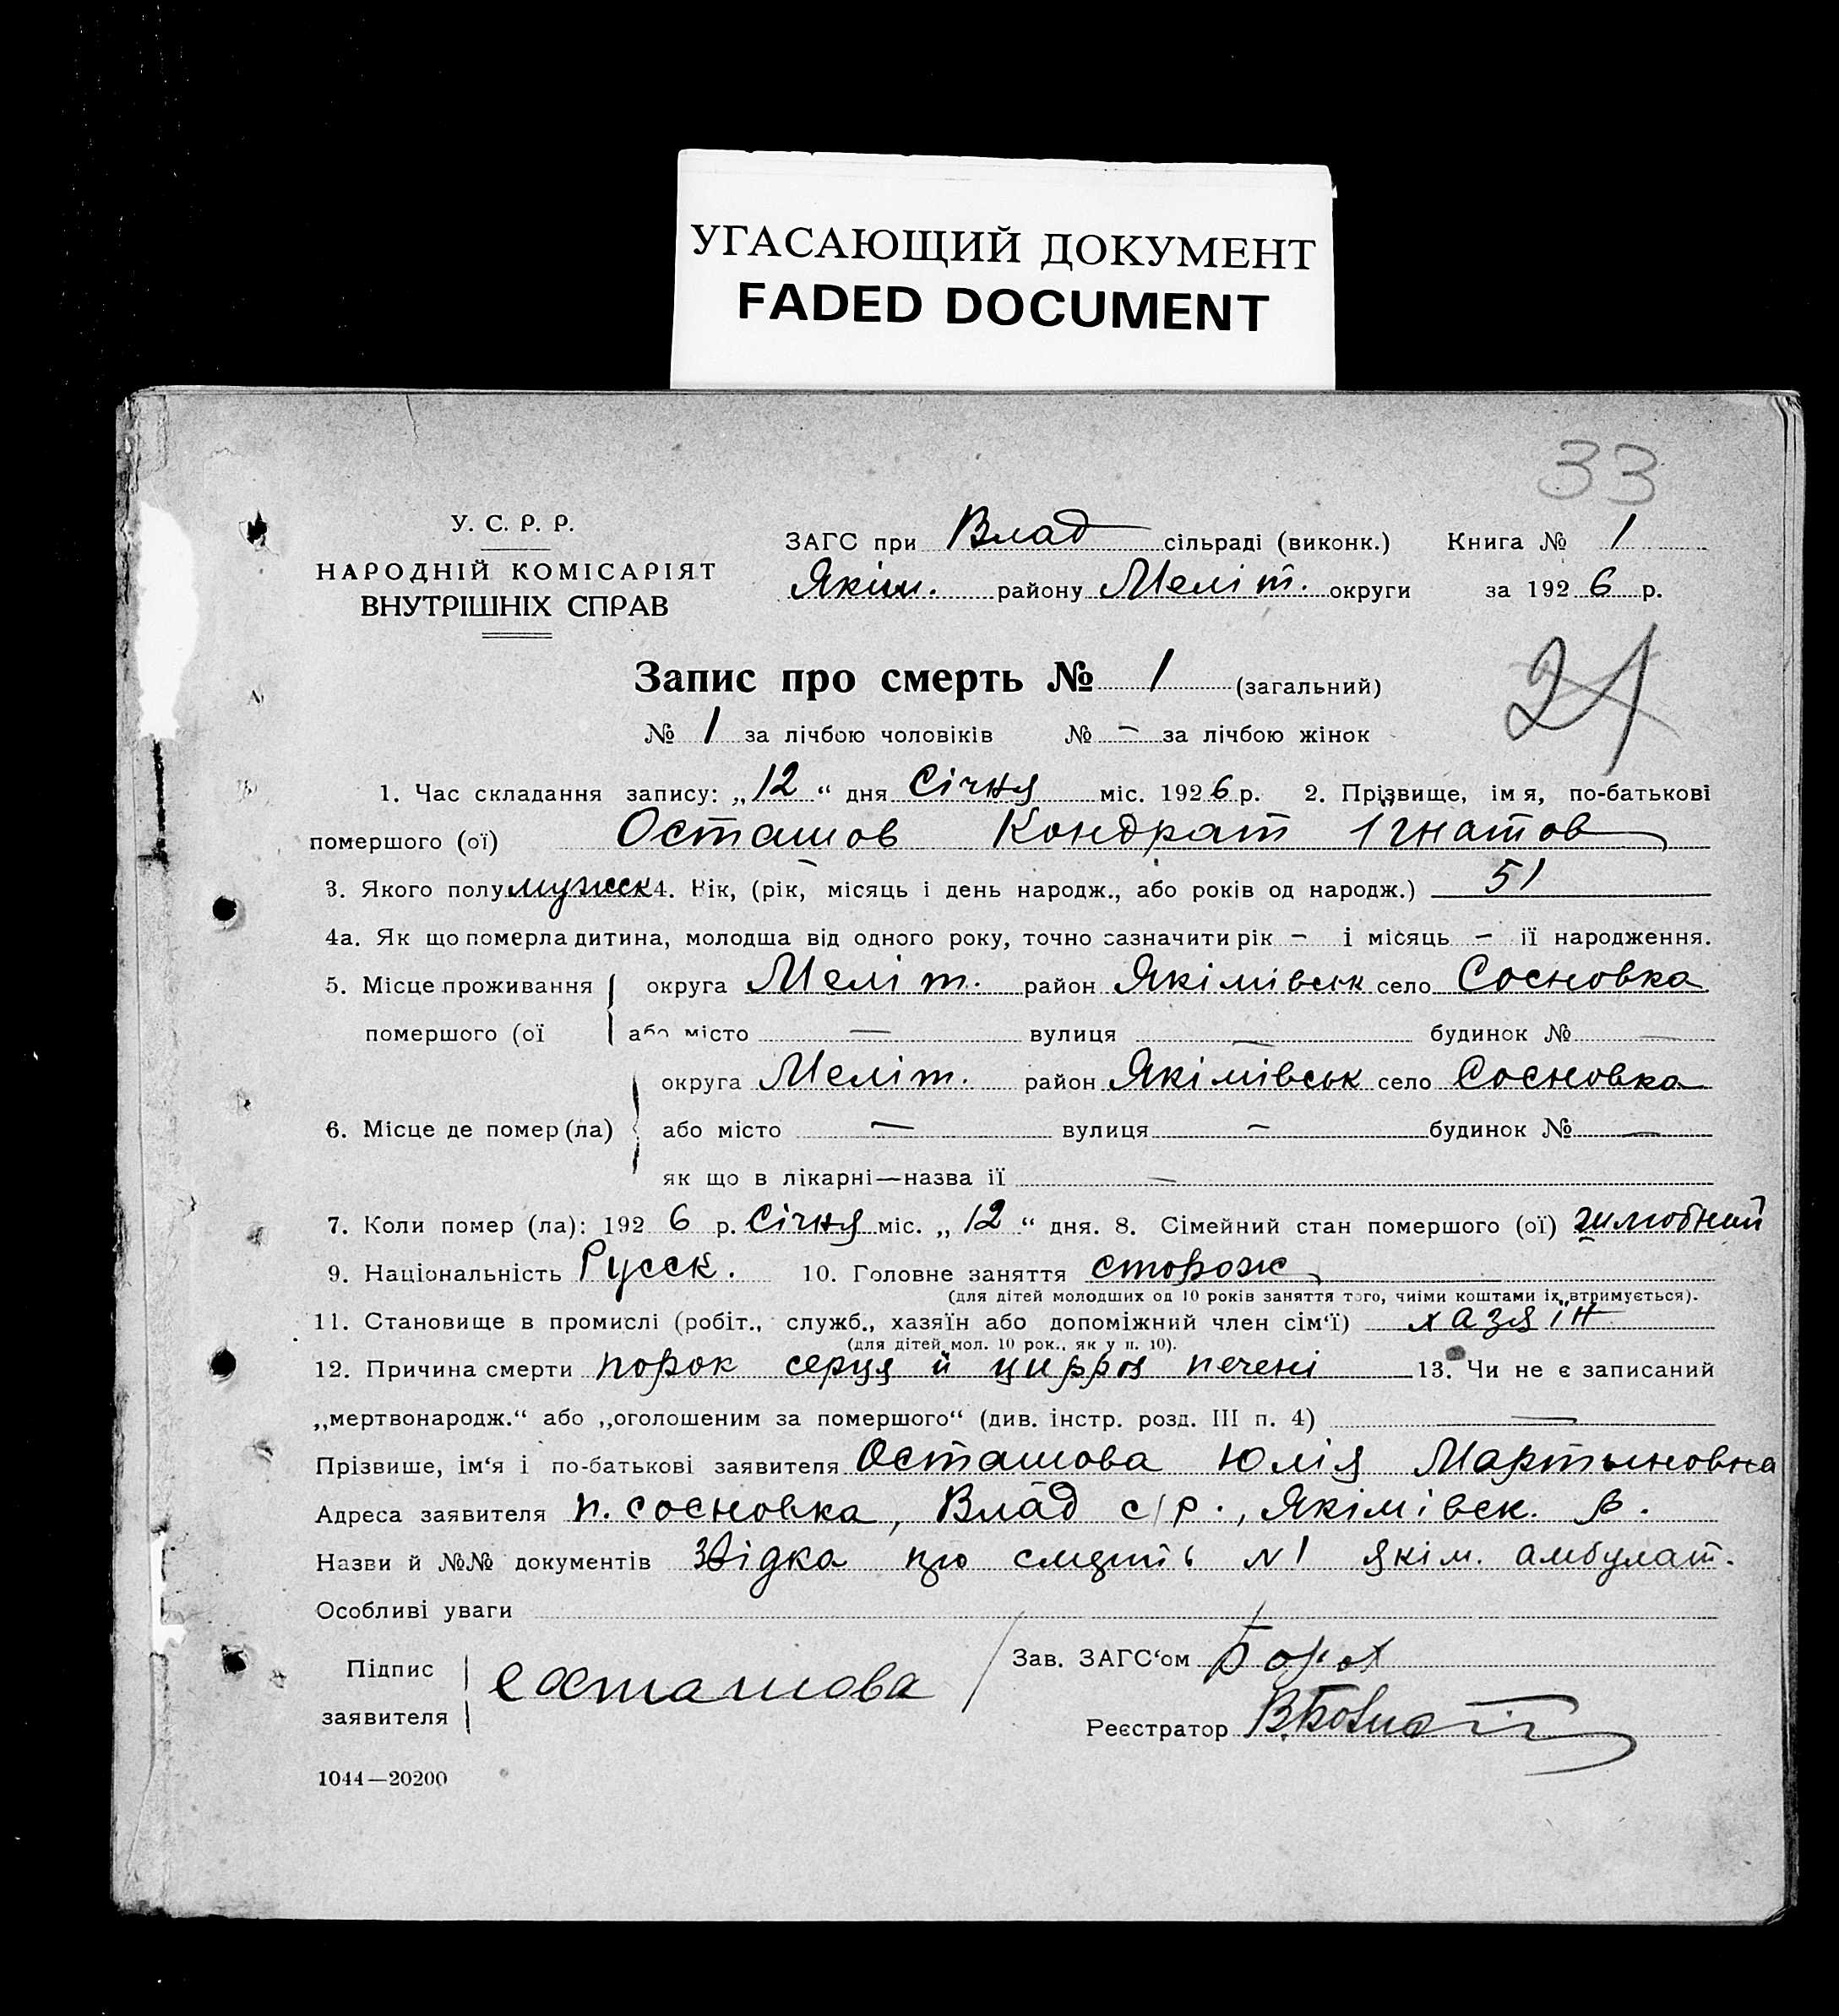 УГАСАЮЩИЙ ДОКУМЕНТ
FADED DOCUMENT
33
У. С. Р. Р.
НАРОДНІЙ КОМІСАРІЯТ
ВНУТРІШНІХ СПРАВ
ЗАГС при Влад сільраді (виконк.) Книга № 1
Якім. району Меліт. округи за 1926 р.
Запис про смерть № 1 (загальний)
24
№ 1 за лічбою чоловіків № – за лічбою жінок
1. Час складання запису: „12“ дня Січня міс. 1926 р. 2. Прізвище, імя, по-батькові
помершого (ої) Осташов Кондрат Ігнатов
3. Якого полу мужск 4. Вік, (рік, місяць і день народж., або років од народж.) 51
4а. Як що померла дитина, молодша від одного року, точно зазначити рік – і місяць – її народження.
5. Місце проживання округа Меліт. район Якімівськ село Сосновка
помершого (ої або місто — вулиця — будинок № —
округа Меліт. район Якімівськ село Сосновка
6. Місце де помер (ла) або місто — вулиця — будинок № —
як що в лікарні—назва її —
7. Коли помер (ла): 1926 р. Січня міс. „12“ дня. 8. Сімейний стан помершого (ої)
9. Національність Русск. 10. Головне заняття сторож
(для дітей молодших од 10 років заняття того, чиїми коштами їх втримується).
11. Становище в промислі (робіт., служб., хазяїн або допоміжний член сім‘ї) хазяїн
(для дітей мол. 10 рок., як у п. 10).
12. Причина смерти порок серця й цирроз печені 13. Чи не є записаний
„мертвонародж.“ або „оголошеним за помершого“ (див. інстр. розд. III п. 4) —
Прізвише, ім‘я і по-батькові заявителя Осташова Юлія Мартыновна
Адреса заявителя п. Сосновка, Влад с/р., Якімівск. р.
Назви й №№ документів про смерть №1 Якім. амбулат.
Особливі уваги
Підпис
заявителя Осташова
Зав. ЗАГС‘ом
Реєстратор
1044—20200